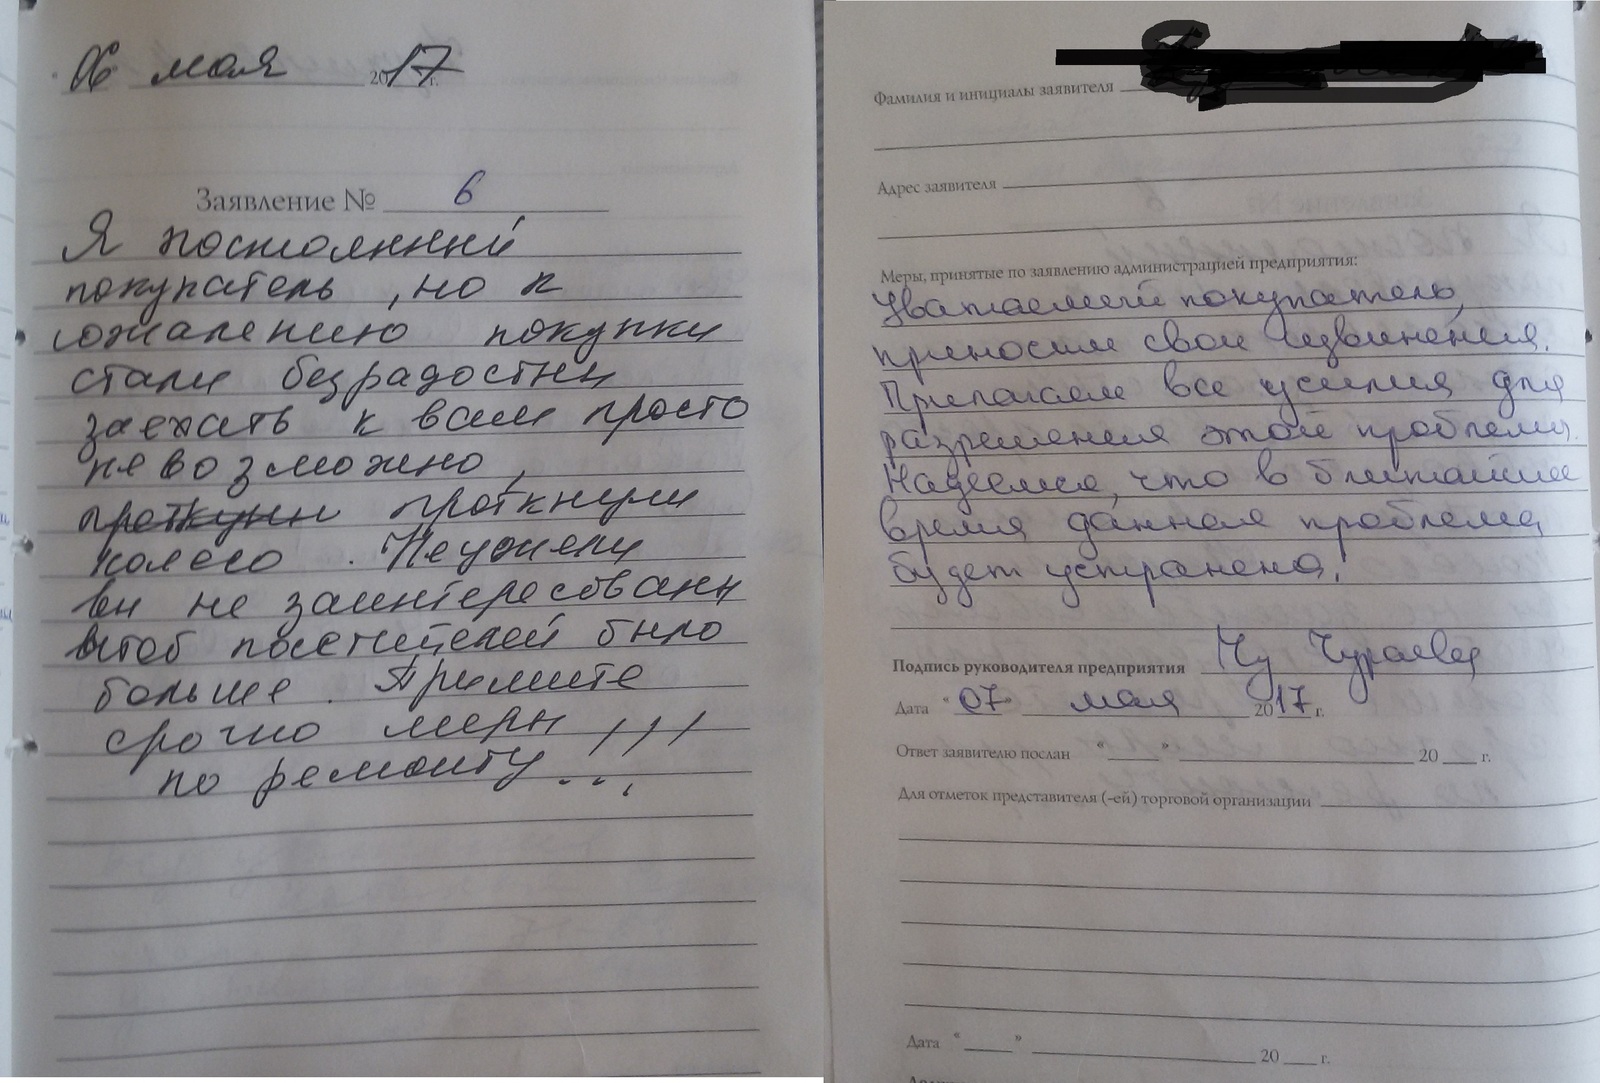 06 мая 2017 г.
Заявление № 6
Я постоянный
покупатель, но к
сожалению покупки
стали безрадостны
заехать к вам просто
не возможно,
проткнули
колесо. Неужели
вы не заинтересованы
чтоб посетителей было
больше. Примите
срочно меры !!!
по ремонту...
Фамилия и инициалы заявителя
Адрес заявителя
Меры, принятые по заявлению администрацией предприятия:
Уважаемый покупатель,
приносим свои извинения.
Прилагаем все усилия для
разрешения этой проблемы.
Надеемся, что в ближайшее
время данная проблема
будет устранена.
Подпись руководителя предприятия Чураева
Дата "07" мая 2017 г.
Ответ заявителю послан " " 20 г.
Для отметок представителя (-ей) торговой организации
Дата " " 20 г.